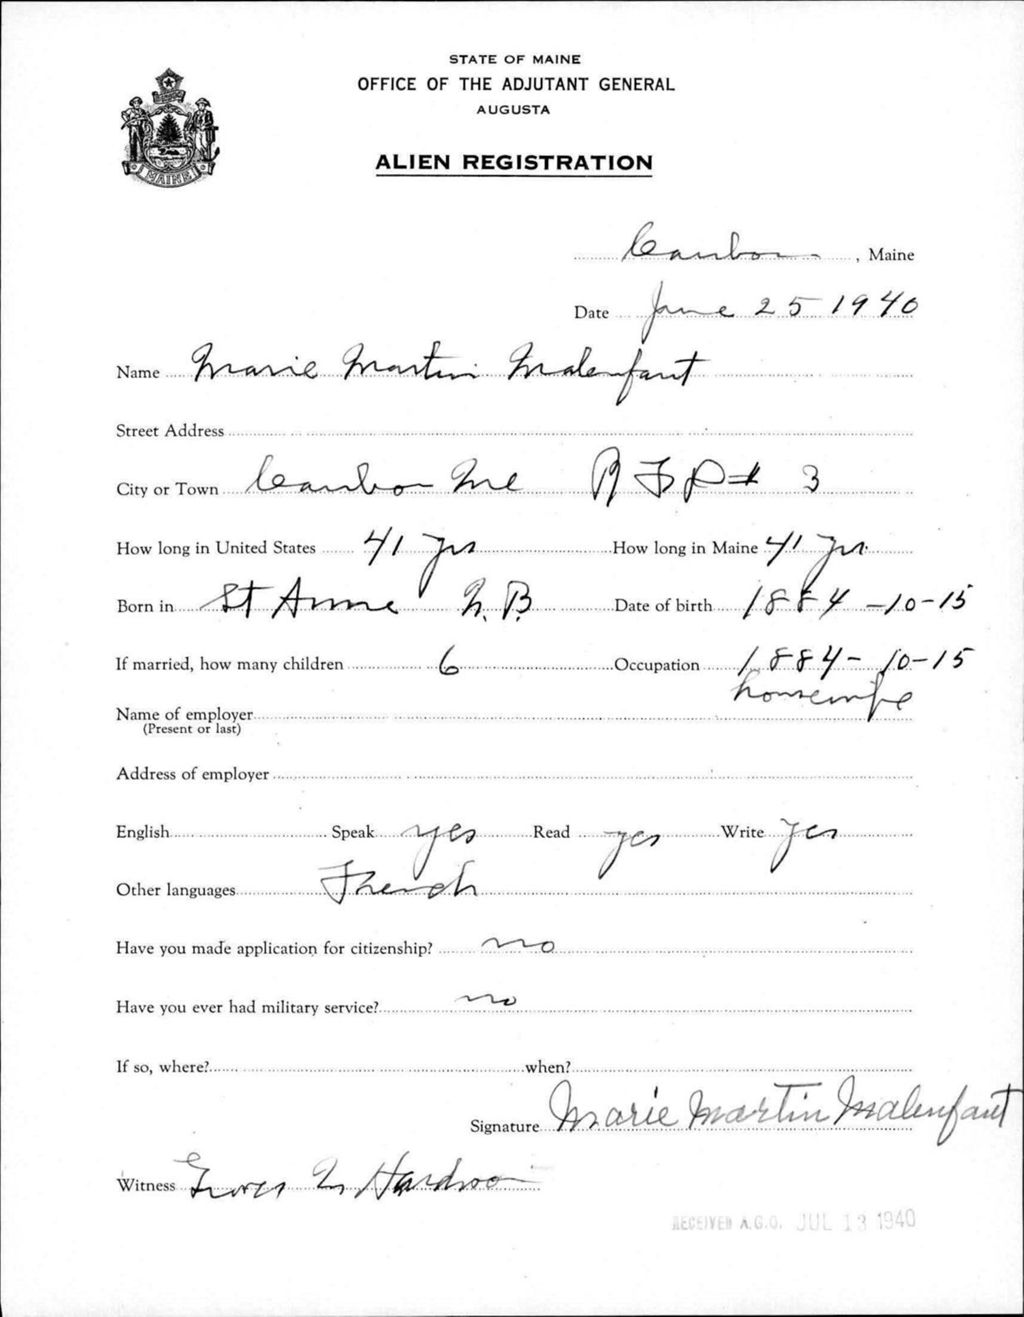 STATE OF MAINE
OFFICE OF THE ADJUTANT GENERAL
AUGUSTA
ALIEN REGISTRATION
MAINE
Caribou, Maine
Date June 25 1940
Name Marie Martin Malenfant
Street Address
City or Town Caribou Me RFD # 3
How long in United States 41 yrs How long in Maine 41 yrs
Born in St Anne N.B. Date of birth 1884-10-15
If married, how many children 6 Occupation 1884-10-15
housewife
Name of employer
(Present or last)
Address of employer
English Speak yes Read yes Write yes
Other languages French
Have you made application for citizenship? no
Have you ever had military service? no
If so, where? when?
Signature Marie Martin Malenfant
Witness
RECEIVED A.G.O. JUL 13 1940